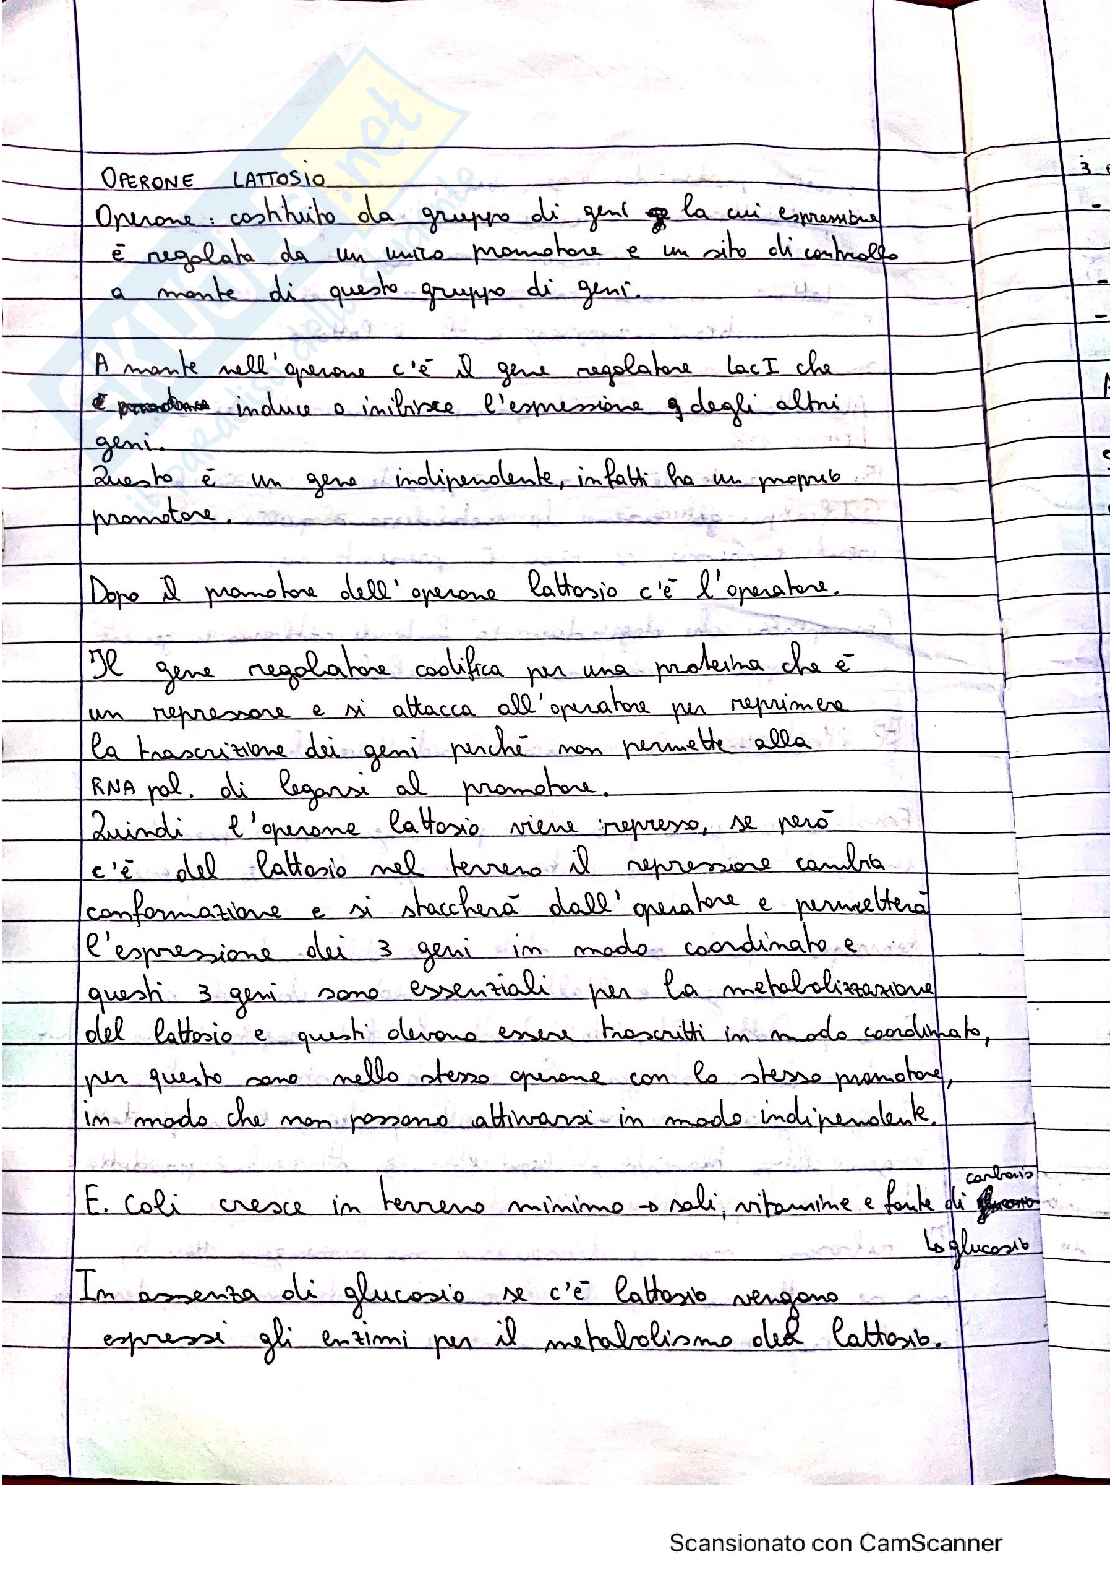 OPERONE LATTOSIO
Operone: costituito da gruppo di geni la cui espressione
è regolata da un unico promotore e un sito di controllo
a monte di questo gruppo di geni.
A monte nell'operone c'è il gene regolatore lacI che
induce o inibisce l'espressione degli altri
geni.
Questo è un gene indipendente, infatti ha un proprio
promotore.
Dopo il promotore dell'operone lattosio c'è l'operatore.
Il gene regolatore codifica per una proteina che è
un repressore e si attacca all'operatore per reprimere
la trascrizione dei geni perché non permette alla
RNA pol. di legarsi al promotore.
Quindi l'operone lattosio viene represso, se però
c'è del lattosio nel terreno il repressione cambia
conformazione e si staccherà dall'operatore e permetterà
l'espressione dei 3 geni in modo coordinato e
questi 3 geni sono essenziali per la metabolizzazione
del lattosio e questi devono essere trascritti in modo coordinato,
per questo sono nello stesso operone con lo stesso promotore,
in modo che non possono attivarsi in modo indipendente.
carbonio
E. Coli cresce in terreno minimo → sali, vitamine e fonte di
↳ glucosio
In assenza di glucosio se c'è lattosio vengono
espressi gli enzimi per il metabolismo del lattosio.
Scansionato con CamScanner